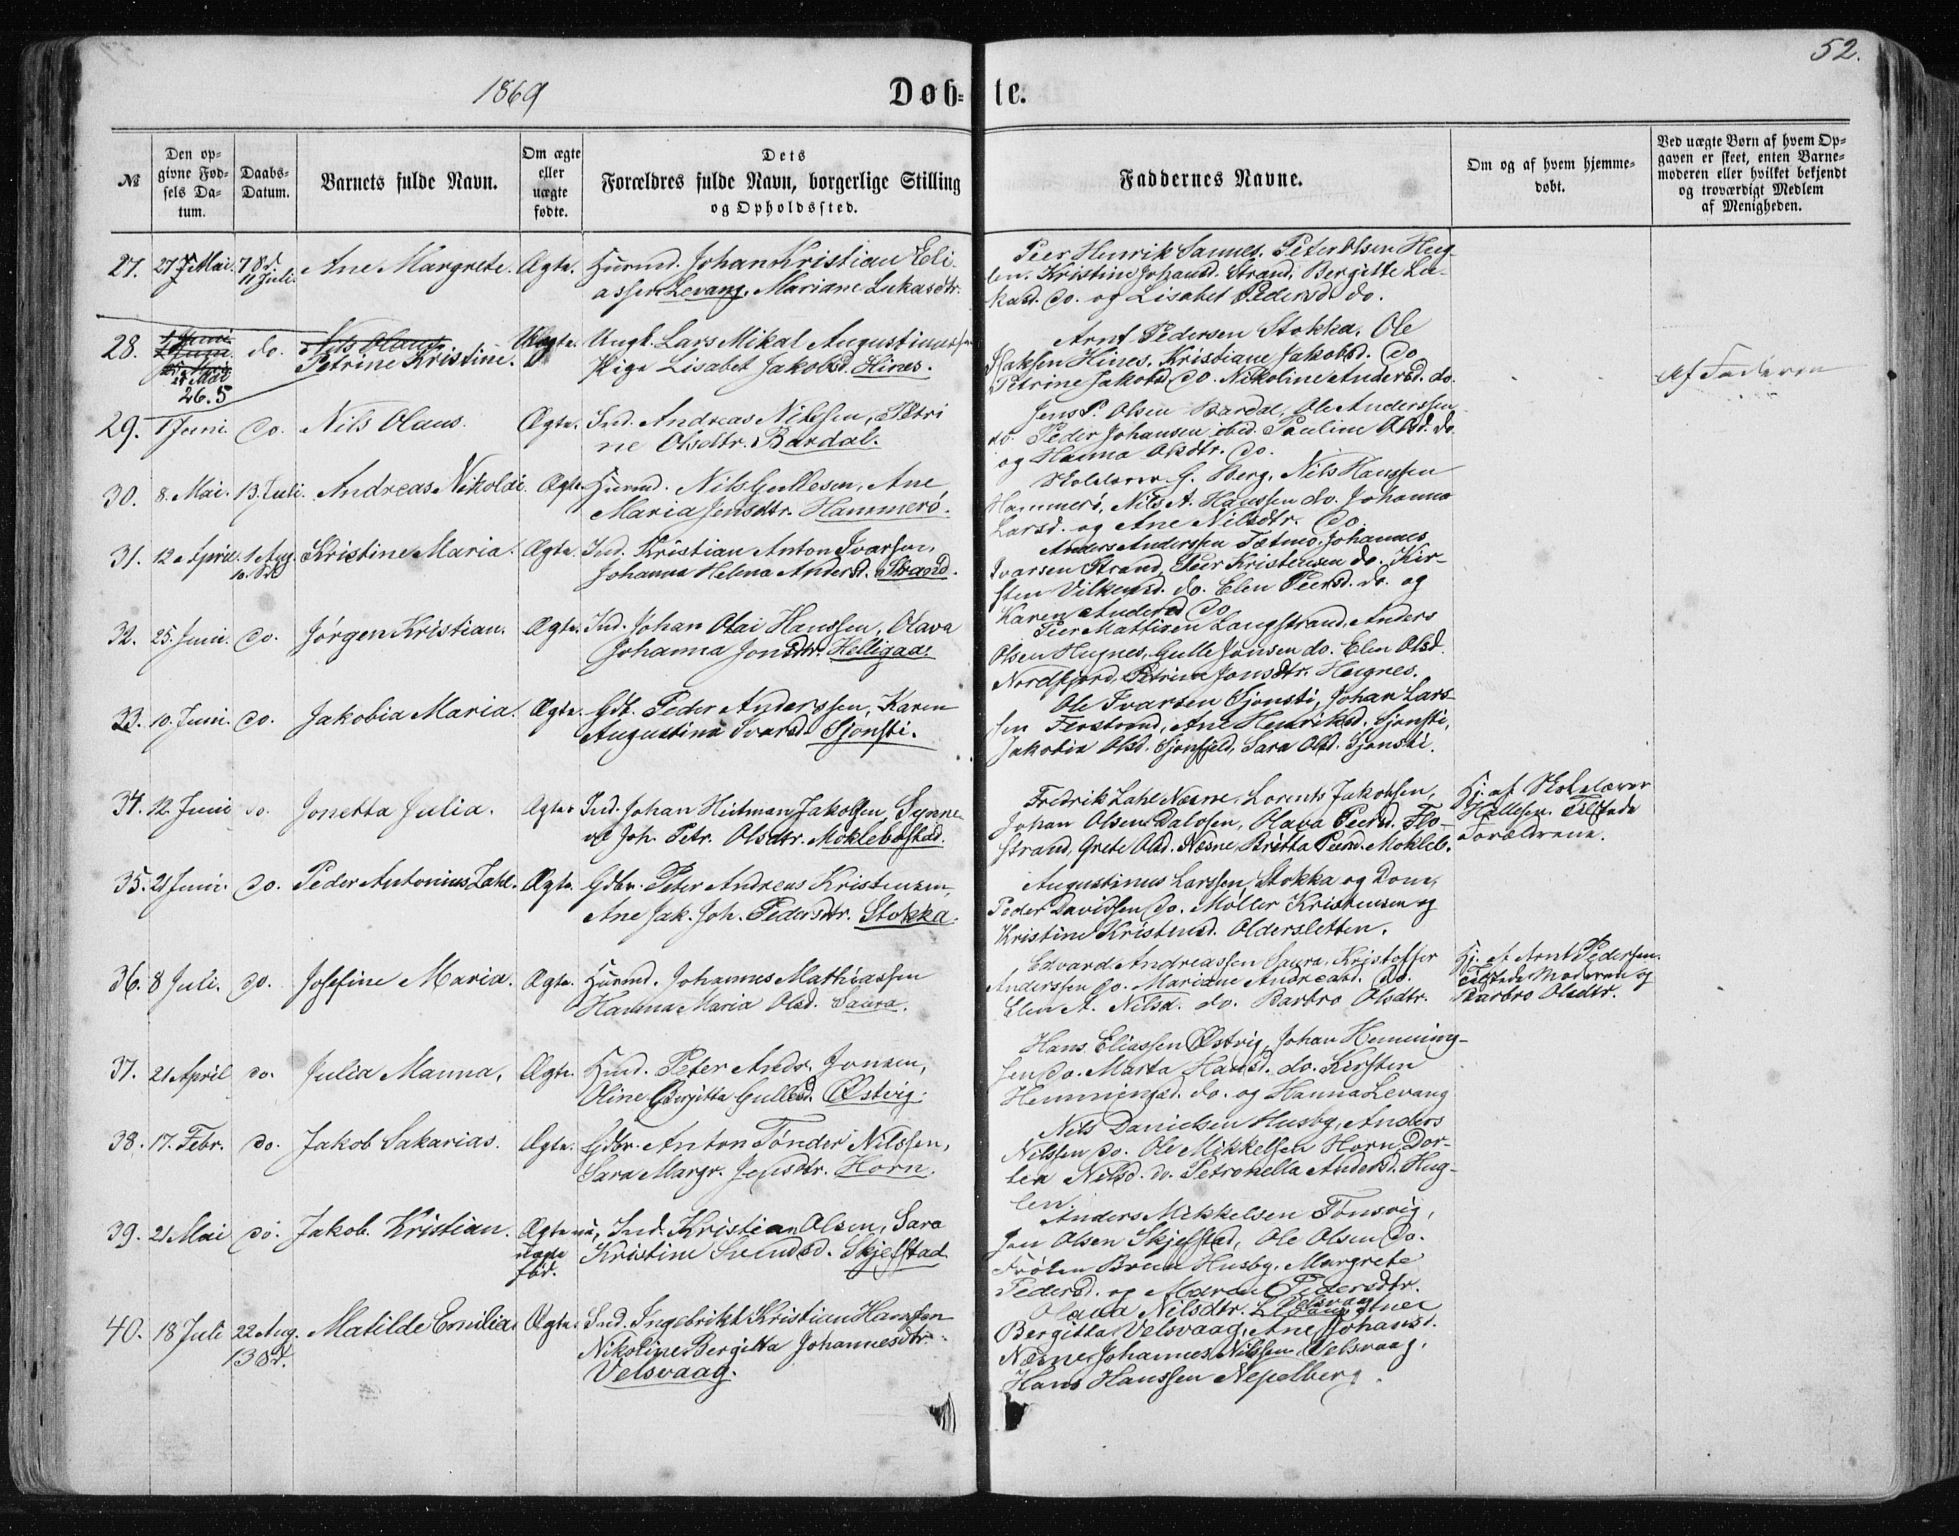 52.
1869
Døb= te.
№
Den op=
givne Fød=
sels Da=
tum.
Daabs=
Datum.
Barnets fulde Navn.
Om ægte
eller
uægte
fødte.
Dets
Forældres fulde Navn, borgerlige Stilling
og Opholdssted.
Faddernes Navne.
Om og af hvem hjemme=
døbt.
Ved uægte Børn af hvem Op=
gaven er skeet, enten Barne=
moderen eller hvilket bekjendt
og troværdigt Medlem
af Menigheden.
27. 27 Mai. 11 Juli. Ane Margrete. Ægte. Huusmd. Johan Kristian Eli-
assen Levang, Mariane Lukasdtr.
Peer Henrik Sannes, Peter Olsen Hug-
len, Kristine Johansd. Strand, Bergitte Lu-
kasd. do. og Lisabet Pedersd. do.
28. 26.5 do. Nils Olaus
Petrine Kristine. Uægte. Ungk. Lars Mikal Augustinussen
Pige Lisabet Jakobsd. Hines.
Arnt Pedersen Stokka, Ole
Isaksen Hines, Kristiane Jakobsd. do
Petrine Jakobsd. do. Nikoline Andersd. do.
Af Faderen
29. 1 Juni. do. Nils Olaus. Ægte. Ind. Andreas Nilssen, Petri
ne Olsdtr. Bardal.
Jens P. Olsen Bardal, Ole Anderssen
do. Peder Johansen ibid. Pauline Olsd. do.
og Hanna Olsdtr. do.
30. 8. Mai. 13. Juli. Andreas Nikolai. Ægte. Huusmd. Nils Gullesen, Ane
Maria Jensdtr. Hammerø.
Skolelærer G. Berg, Nils Hanssen
Hammerø, Nils A. Hanssen do. Johanna
Larsd. og Ane Nilsdtr. do.
31. 12 April. 1 Aug. Kristine Maria. Ægte. Ind. Kristian Anton Ivarsen,
Johanna Helena Andersd. Strand.
Anders Anderssen Tætmo, Johannes
Ivarsen Strand, Peer Kristensen do. Kir-
sten Vilkensd. do. Elen Peersd. do. og
Karen Andersd. do
32. 25. Juni. do. Jørgen Kristian. Ægte. Ind. Johan Olai Hanssen, Olava
Johanna Jonsdtr. Helligaas.
Peer Mathisen Langstrand, Anders
Olsen Hugnes, Gulle Jonsen do. Elen Olsd.
Nordfjord, Petrine Jonsdtr. Hugnes.
33. 10. Juni. do. Jakobia Maria. Ægte. Gdb. Peder Anderssen, Karen
Augustina Ivarsd. Sjonsti.
Ole Ivarsen Sjonsti, Johan Lars-
sen Finstrand, Ane Henriksd. Sjonsti,
Jakobia Olsd. Sjonfjeld, Sara Olsd. Sjonsti.
34. 12. Juni do. Jonetta Julia. Ægte. Ind. Johan Heitman Jakobsen, Synne
ve Joh. Petr. Olsdtr. Moklebostad.
Fredrik Zahl Nesne, Lorents Jakobsen,
Johan Olsen Dalosen, Olava Peersd. Flo-
strand, Grete Olsd. Nesne, Britta Peersd. Mokleb.
Hj. af Skolelærer
Hallesen. Tilstede
Forældrene.
35. 21 Juni. do. Peder Antonius Zahl. Ægte. Gdbr. Peter Andreas Kristensen,
Ane Jak. Joh. Pedersdtr. Stokka.
Augustinus Larssen, Stokka og Dom,
Peder Davidsen do. Møller Kristensen og
Kristine Kristensd. Oldersletten.
36. 8 Juli. do. Josefine Maria. Ægte. Huusmd. Johannes Mathiassen
Hanna Maria Olsd. Saura.
Edvard Andreassen Saura, Kristoffer
Anderssen do. Mariane Andreasd. do.
Elen A. Nilsd. do. Barbro Olsdtr.
Hj. af Arnt Pedersen.
Tilstede Moderen og
Barbro Olsdtr.
37. 21 April do. Julia Manna. Ægte. Husmd. Peter Andr. Jonsen,
Oline Birgitta Gullesd. Østvig.
Hans Eliassen Østvig, Johan Henning-
sen do. Marta Hansd. do. Kirsten
Henningsd. do. og Hanna Levang
38. 17. Febr. do. Jakob Sakarias. Ægte. Gdbr. Anton Tønder Nilssen,
Sara Margr. Jensdtr. Horn.
Nils Danielsen Husby, Anders
Nilssen do. Ole Mikkelsen Horn, Dor-
tea Nilsd. do. Petronella Andersd. Hug-
len
39. 21 Mai do. Jakob Kristian. Ægte nu,
uægte
fød. Ind. Kristian Olsen, Sara
Kristine Svendsd. Skjelstad
Anders Mikkelsen Fonsvig,
Jon Olsen Skjelstad, Ole Olsen do.
Frøken Brun Husby, Margrete
Pedersd. og Maren Pedersdtr.
40. 18 Juli 22 Aug. Matilde Emilie. Ægte. Ind. Ingebrikt Kristian Hanssen
Nikoline Bergitta Johannesdtr.
Velsvaag.
Olava Nilsdtr. Velsvaag
Bergitta Velsvaag, Ane Johansd.
Nesne, Johannes Nilssen Velsvaag,
Hans Hanssen Nepelberg.